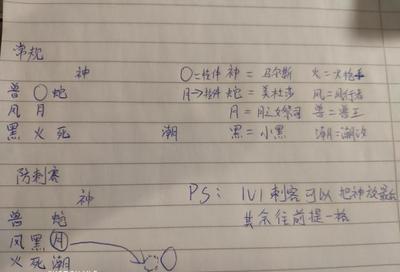 常规
神 〇=控件 神=马尔斯 火=火枪手
兽 〇 蛇 月→控件 蛇=美杜莎 风=风行者
风 月 月=月之女祭司 兽=兽王
黑 火 死 潮 黑=小黑 潮=潮汐
防刺客
神 PS: 1V1刺客可以把神放最后
兽 蛇 其余往前提一格
风 黑 月
火 死 潮 〇